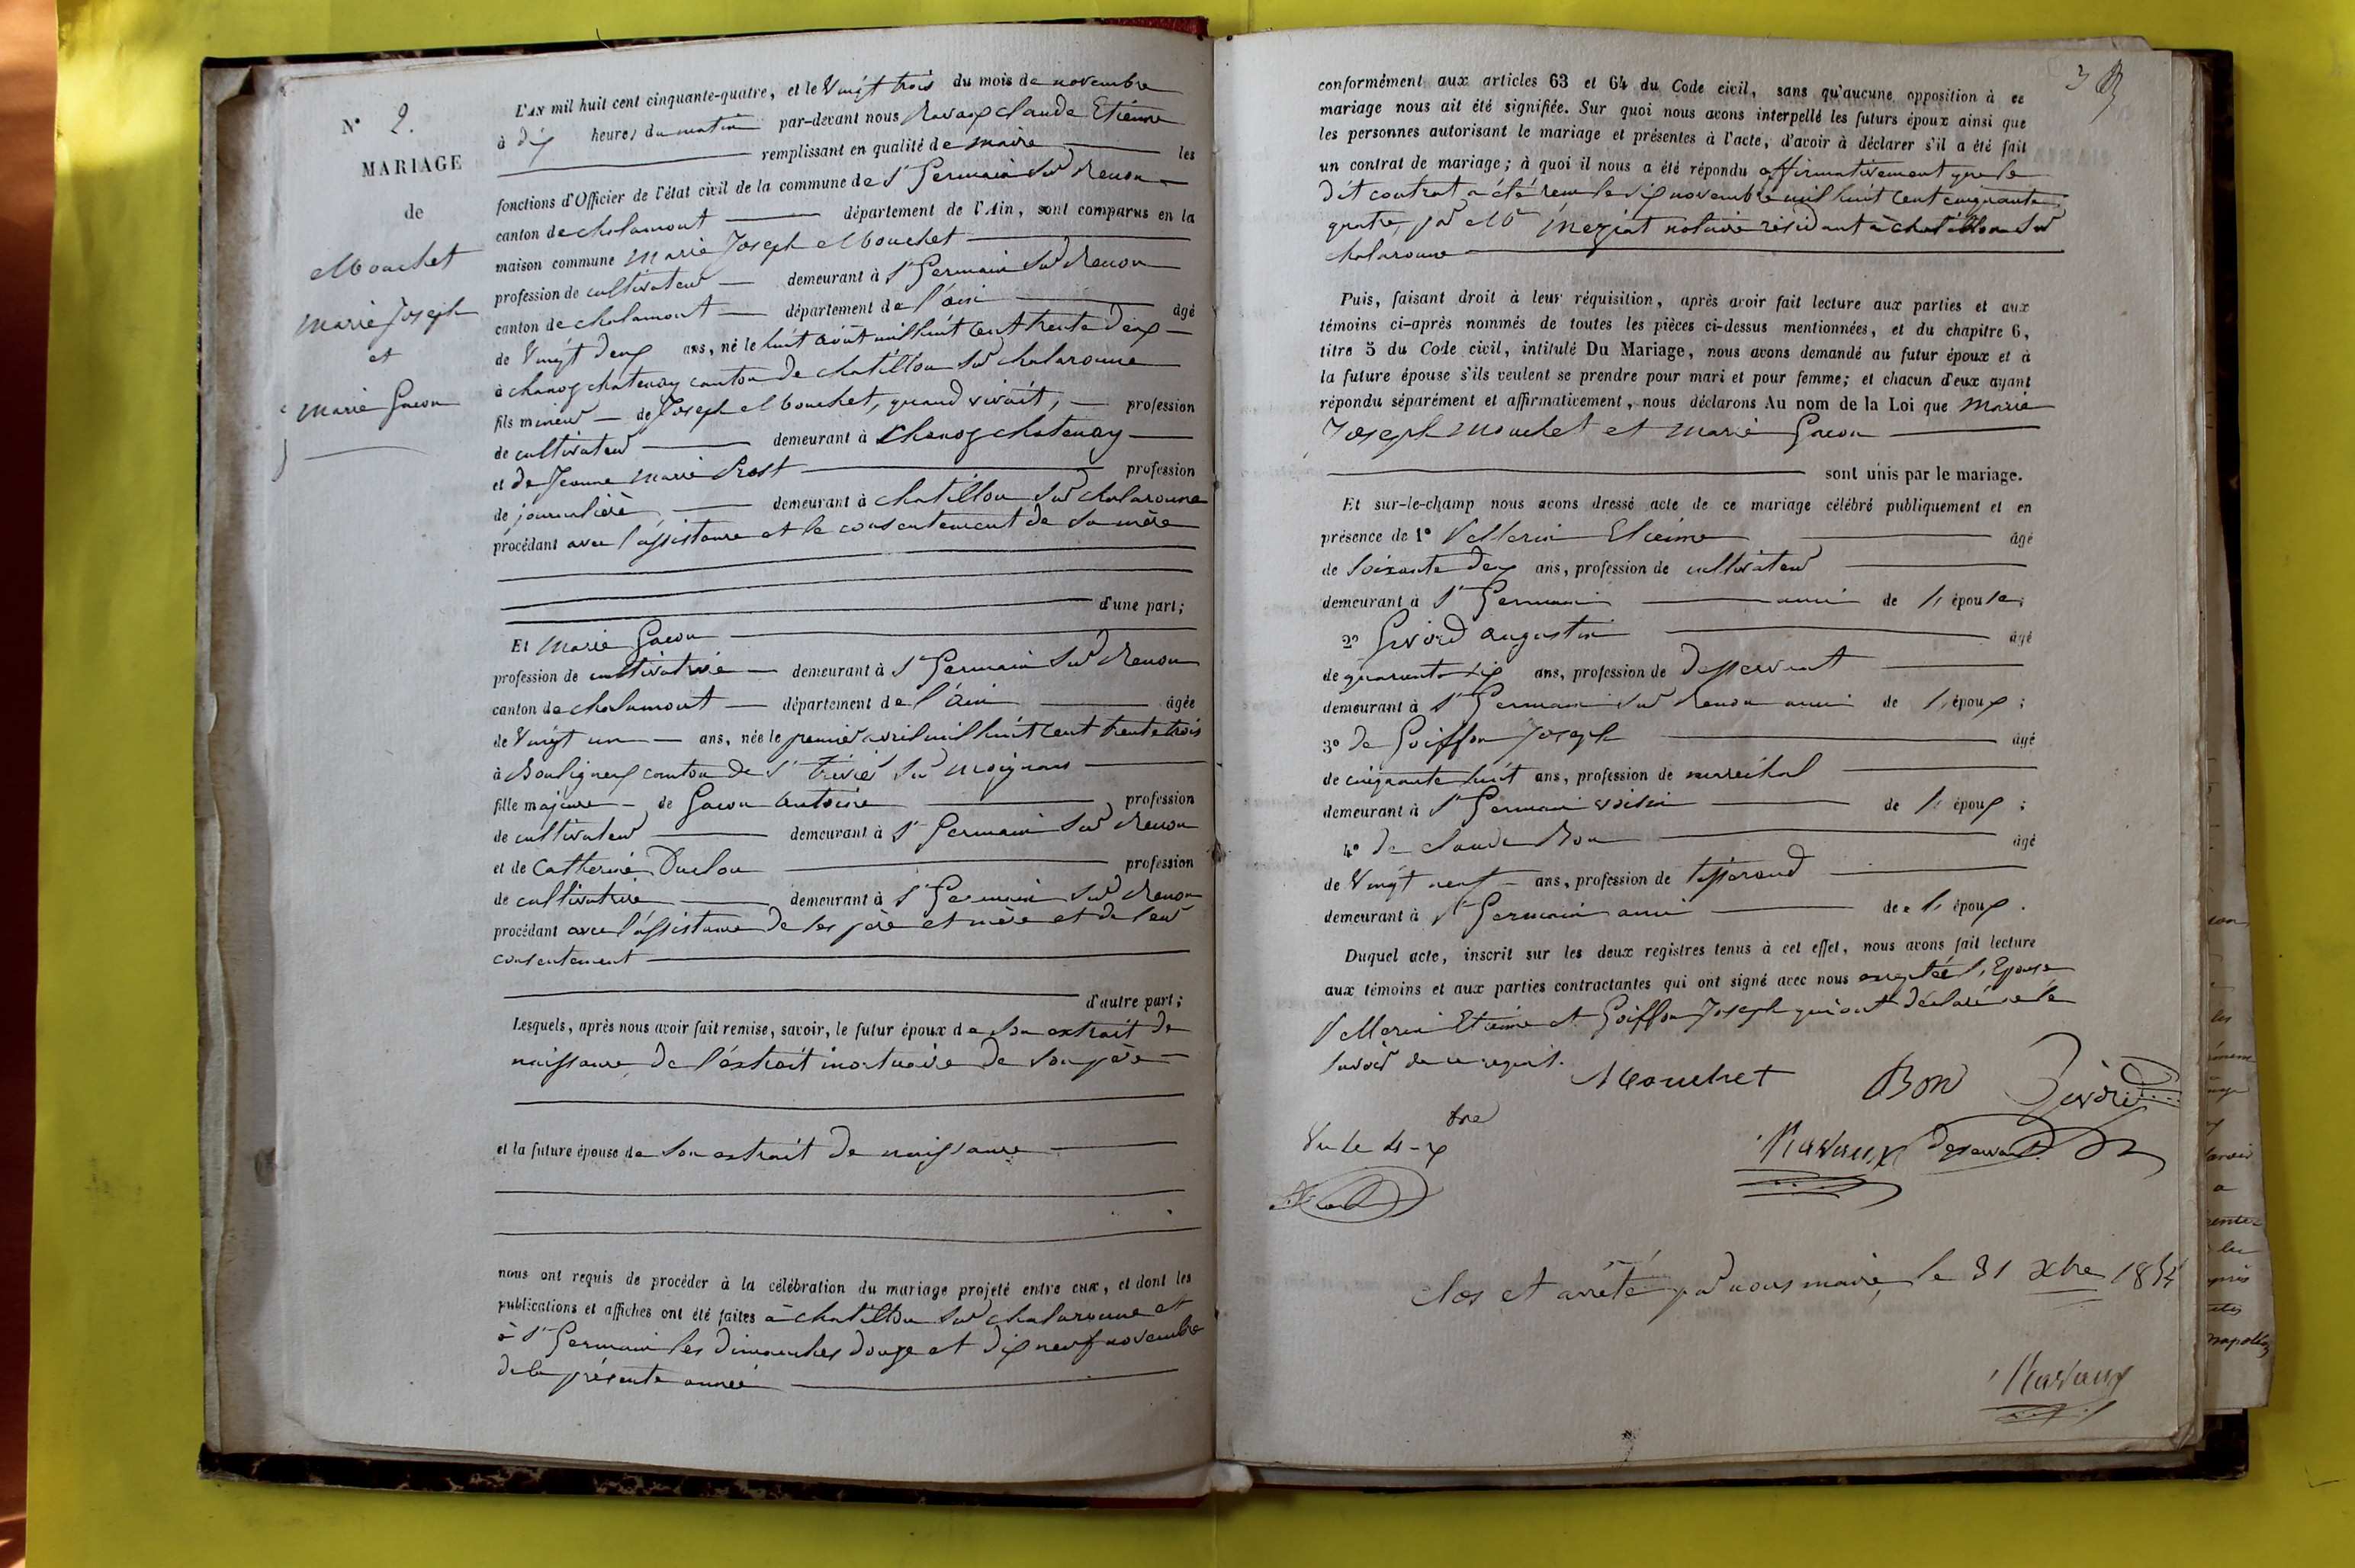 N° 2.
MARIAGE
de
Mouchet
Marie Joseph
et
Marie Gacon
L'AN mil huit cent cinquante-quatre, et le Vingt trois du mois de novembre
à dix heures du matin par-devant nous Ravaux claude Etienne
remplissant en qualité de maire les
fonctions d'Officier de l'état civil de la commune de St Germain sur Renon
canton de chalamont département de l'Ain, sont comparus en la
maison commune Marie Joseph Mouchet
profession de cultivateur demeurant à St Germain sur Renon
canton de chalamont département de l'ain âgé
de Vingt deux ans, né le huit août mil huit cent trente deux
à chanoz chatenay canton de chatillon sur chalaronne
fils mineur de Joseph Mouchet, quand vivait, profession
de cultivateur demeurant à chanoz chatenay
et de Jeanne Marie Prost profession
de journalière demeurant à chatillon sur chalaronne
procédant avec l'assistance et le consentement de sa mère
d'une part;
Et Marie Gacon
profession de cultivatrice demeurant à St Germain sur Renon
canton de chalamont département de l'ain âgée
de Vingt un ans, née le premier avril mil huit cent trente trois
à Bouligneux canton de St Trivier sur Moignans
fille majeure de Gacon Antoine profession
de cultivateur demeurant à St Germain sur Renon
et de Catherine Duclou profession
de cultivatrice demeurant à St Germain sur Renon
procédant avec l'assistance de ses père et mère et de leur
consentement
d'autre part;
Lesquels, après nous avoir fait remise, savoir, le futur époux de son extrait de
naissance de l'extrait mortuaire de son père
et la future épouse de son extrait de naissance
nous ont requis de procéder à la célébration du mariage projeté entre eux, et dont les
publications et affiches ont été faites à chatillon sur chalaronne et
à St Germain les dimanches douze et dix neuf novembre
de la présente année
3
conformément aux articles 63 et 64 du Code civil, sans qu'aucune opposition à ce
mariage nous ait été signifiée. Sur quoi nous avons interpellé les futurs époux ainsi que
les personnes autorisant le mariage et présentes à l'acte, d'avoir à déclarer s'il a été fait
un contrat de mariage; à quoi il nous a été répondu affirmativement que le
dit contrat a été reçu le dix novembre mil huit cent cinquante
quatre, par Me Meziat notaire résidant à chatillon sur
chalaronne
Puis, faisant droit à leur réquisition, après avoir fait lecture aux parties et aux
témoins ci-après nommés de toutes les pièces ci-dessus mentionnées, et du chapitre 6,
titre 5 du Code civil, intitulé Du Mariage, nous avons demandé au futur époux et à
la future épouse s'ils veulent se prendre pour mari et pour femme; et chacun d'eux ayant
répondu séparément et affirmativement, nous déclarons Au nom de la Loi que Marie
Joseph Mouchet et Marie Gacon
sont unis par le mariage.
Et sur-le-champ nous avons dressé acte de ce mariage célébré publiquement et en
présence de 1° Vellerin Etienne âgé
de soixante deux ans, profession de cultivateur
demeurant à St Germain ami de l'épouse;
2° Givord Augustin âgé
de quarante six ans, profession de desservant
demeurant à St Germain sur Renon ami de l'époux;
3° de Goiffon Joseph âgé
de cinquante huit ans, profession de marechal
demeurant à St Germain voisin de l'époux;
4° de claude Bon âgé
de Vingt neuf ans, profession de tisserand
demeurant à St Germain ami de l'époux.
Duquel acte, inscrit sur les deux registres tenus à cet effet, nous avons fait lecture
aux témoins et aux parties contractantes qui ont signé avec nous exceptée l'Epouse
Vellerin Etienne et Goiffon Joseph qui ont déclaré ne le
savoir de ce requis.
Mouchet Bon Givord
Vu le 4 - Xbre
Ravaux desservant
clos et arrêté par nous maire, le 31 Xbre 1854
Ravaux